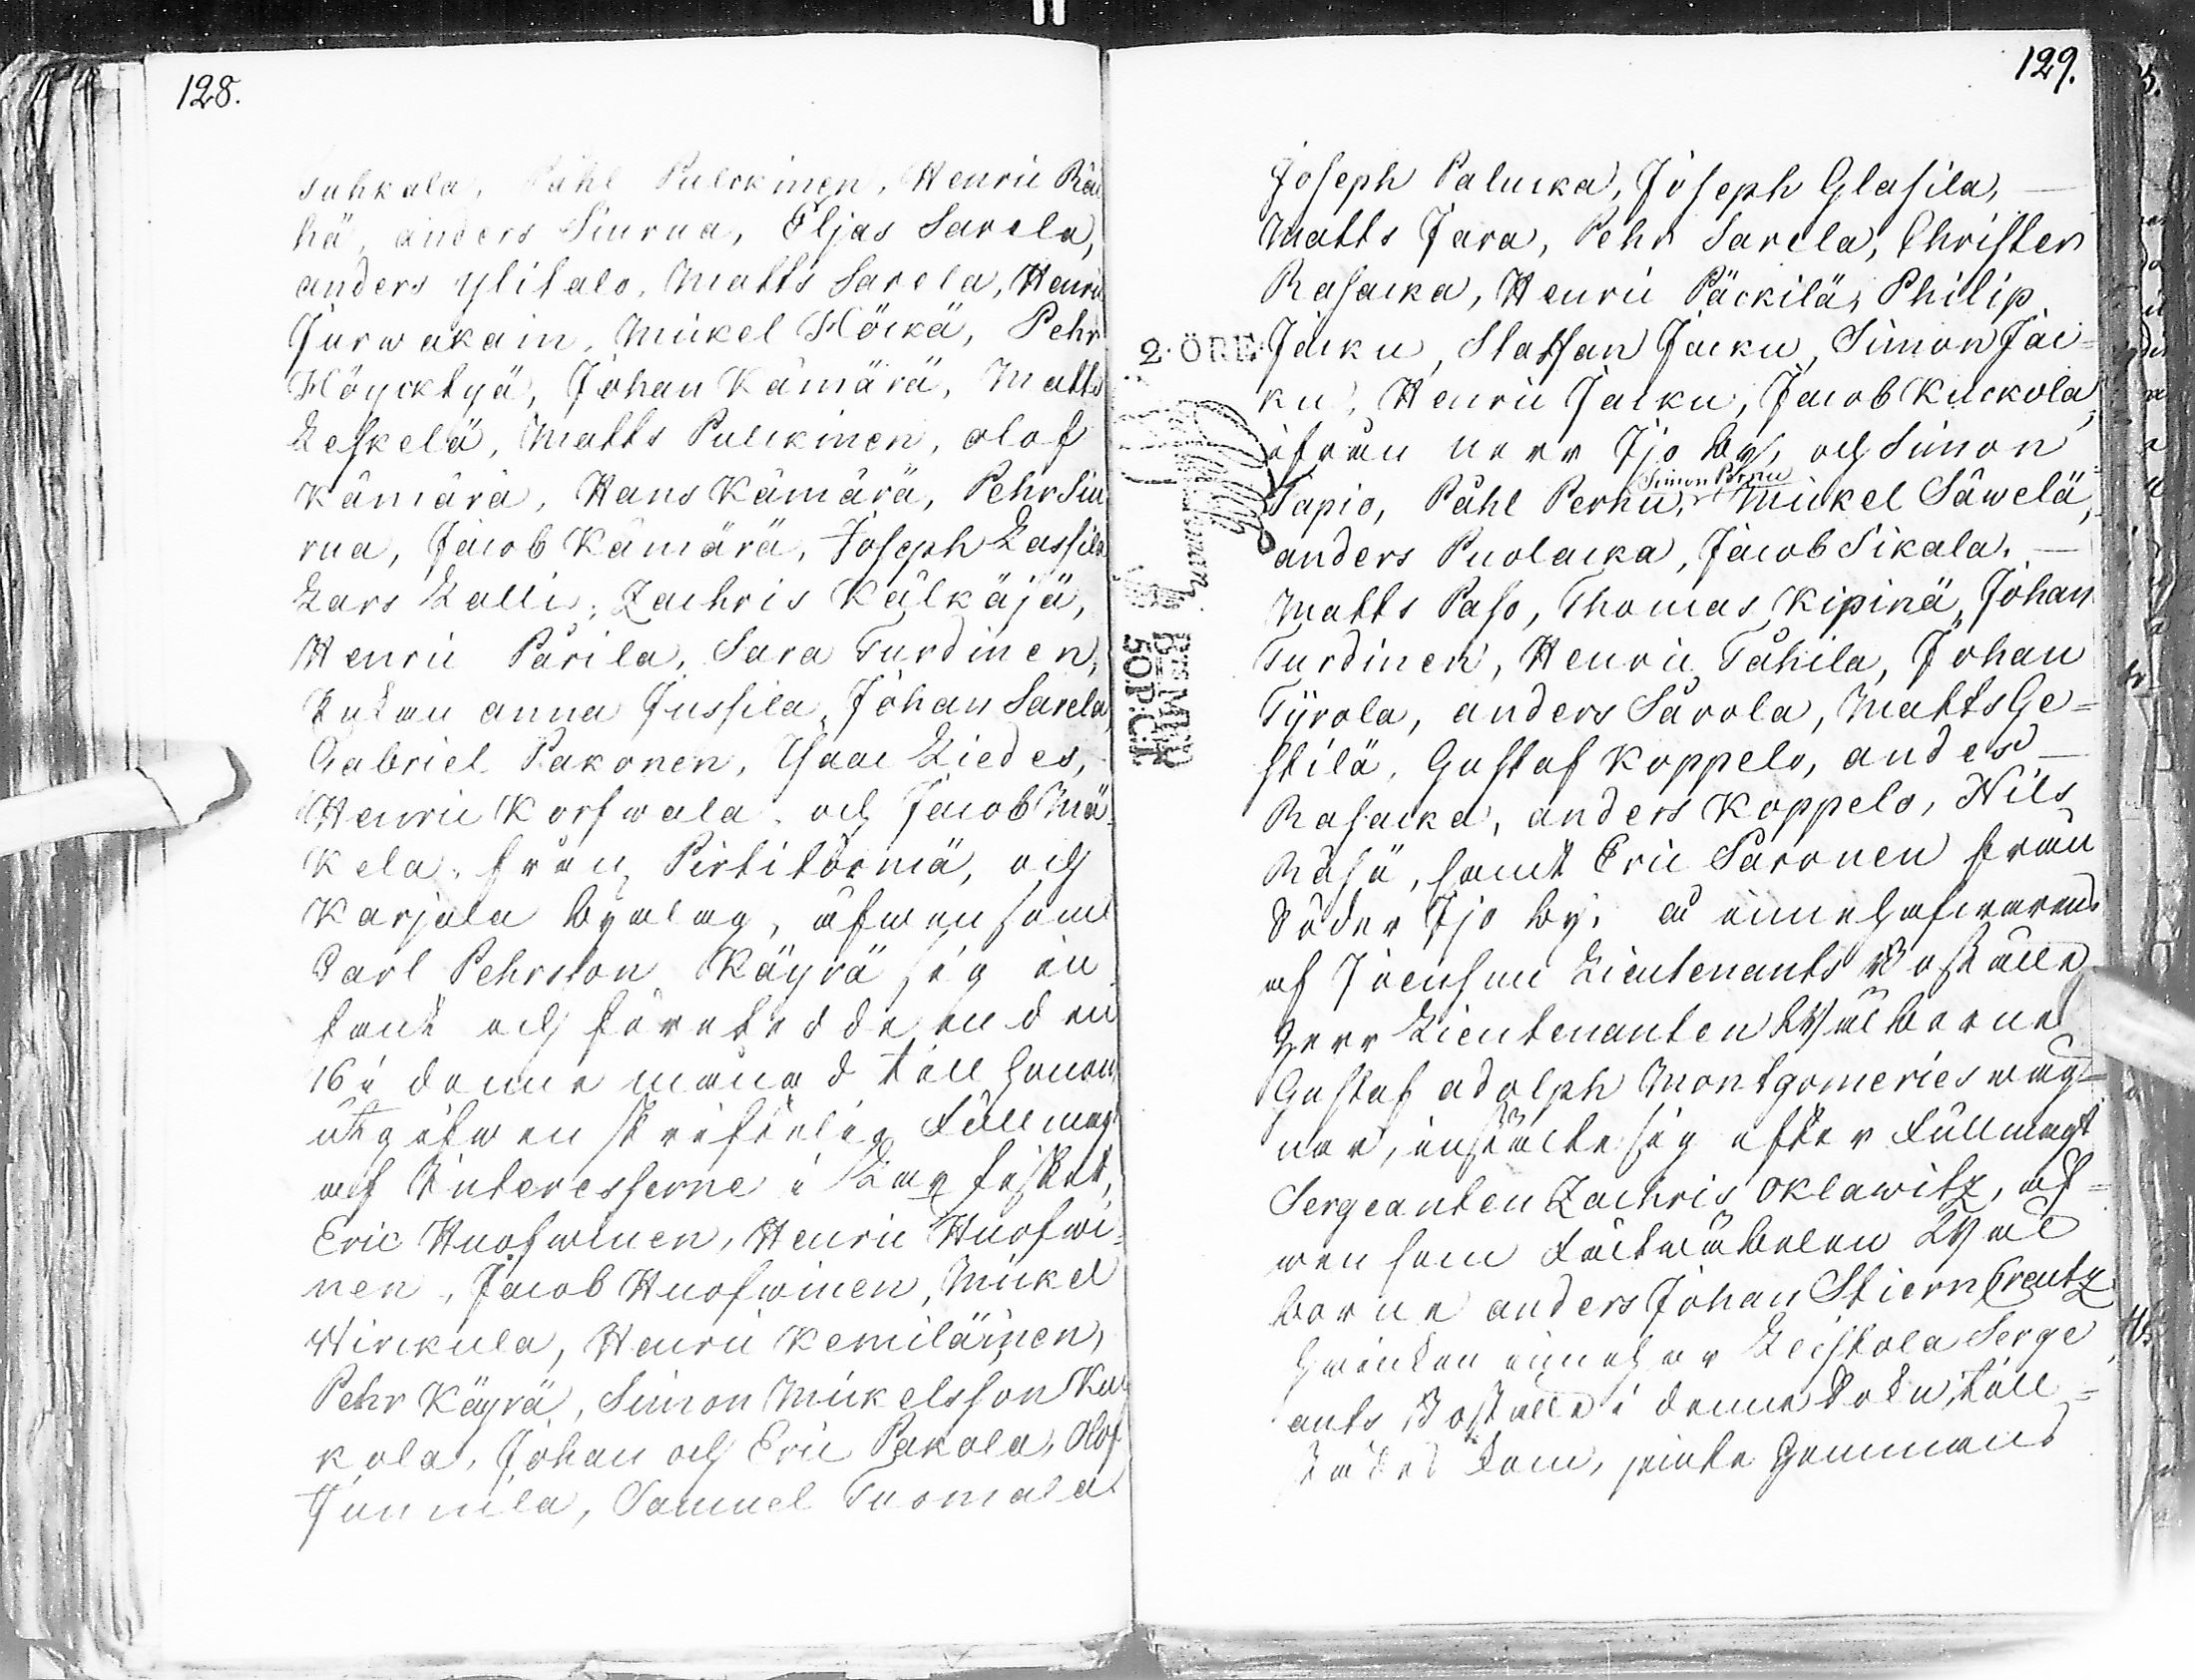 128.
suhkala, Påhl Pulckinen, Henric Räi
hä, anders Siurua, Eljas Sarela,
anders Ylitalo, Matts Sarela, Henric
Jurwakain, Mickel Höckä, Pehr
Höycktyä, Johan Kämärä, Matts
Keskelä, Matts Pulckinen, olof
Kämärä, Hans Kämärä, Pehr Siu
rua, Jacob Kämärä, Joseph Lassila
Lars Lalli, Zachris Kälkäjä,
Henric Parila, Sara Turdinen,
Enkan anna Jussila, Johan Sarela,
Gabriel Pakonen, Isaac Liedes,
Henric Korswala, och Jacob Mä
kela, från Pirtitörmä, och
Karjala byalag, äfwensom
Carl Pehrsson Käyrä sig in
fant och företedde en den
16 i denne månad till honom
utgifwen skriftelig Fullmagt
af Interessterne i Kar fisket,
Eric Huofwinen, Henric Huofwi-
nen, Jacob Huofwinen, Mickel
Wirckula, Henric Kemiläinen,
Pehr Käyrä, Simon Mickelsson Kuc
kola, Johan och Eric Pakola, Olof
Junnila, Samuel Tuomala
129.
Joseph Palucka, Joseph Glasila,
Matts Jara, Pehr Sarela, Christer
Rasacka, Henric Päckilä, Philip
2. ÖRE
Jacku, Staffan Jacku, Simon Jac-
ku, Henric Jacku, Jacob Kuckola,
ifrån norr Ijo by, och Simon
Simon Pernu
Tapio, Påhl Pernu, Mickel Säwelä,
anders Puolacka, Jacob Sikala,
Matts Paso, Thomas Kipinä, Johan
Turdinen, Henric Tåhila, Johan
Tyrola, anders Sårola, Matts Ge-
stilä, Gustaf Koppelo, anders
Rasacka, anders Koppelo, Nils
Räsä, samt Eric Paronen från
Söder Ijo by; å innehafwarens
af Joensuu Lieutenants Boställe
Herr Lieutenanten Wälborne
Gustaf adolph Montgomeries wäg-
nar, instälte sig efter Fullmagt
Sergeanten Zachris Oklawitz, äf-
wensom Fältwäbelen Wäl
borne anders Johan StiernCreutz
hwilken innehar Leistola Serge
ants Boställe i denne Sokn, till-
50P:C:t